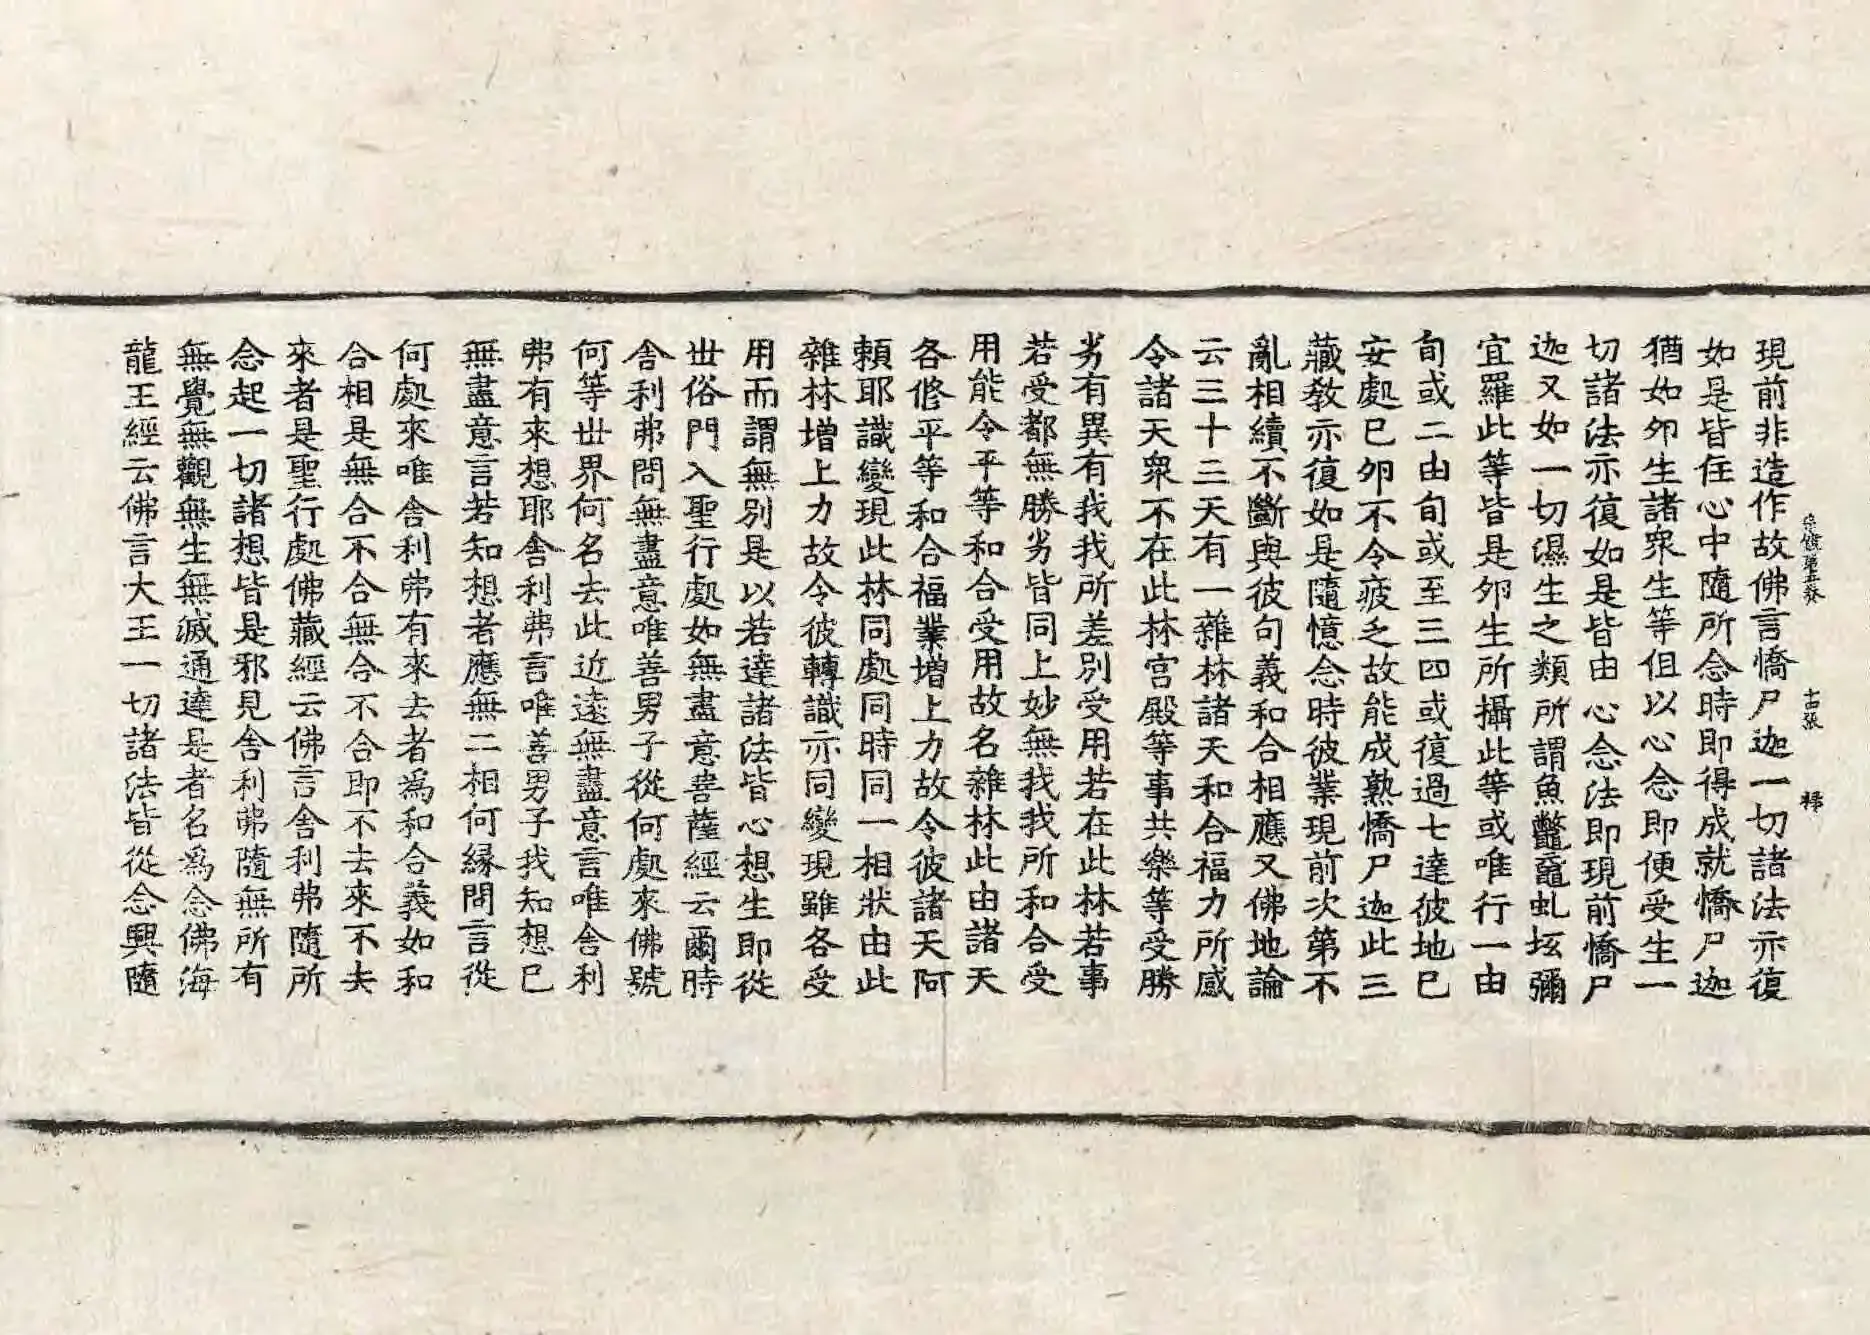 宗鏡第五卷 十四張 禄
現前非造作故佛言憍尸迦一切諸法亦復
如是皆住心中隨所念時即得成就憍尸迦
猶如夘生諸衆生等但以心念即便受生一
切諸法亦復如是皆由心念法即現前憍尸
迦又如一切濕生之類所謂魚鼈黿虬坻彌
宜羅此等皆是夘生所攝此等或唯行一由
旬或二由旬或至三四或復過七達彼地已
安處已夘不令疲乏故能成熟憍尸迦此三
藏教亦復如是隨憶念時彼業現前次第不
亂相續不斷與彼句義和合相應又佛地論
云三十三天有一雜林諸天和合福力所感
令諸天衆不在此林宮殿等事共樂等受勝
劣有異有我我所差別受用若在此林若事
若受都無勝劣皆同上妙無我我所和合受
用能令平等和合受用故名雜林此由諸天
各修平等和合福業增上力故令彼諸天阿
賴耶識變現此林同處同時同一相狀由此
雜林增上力故令彼轉識亦同變現雖各受
用而謂無別是以若達諸法皆心想生即從
世俗門入聖行處如無盡意菩薩經云爾時
舍利弗問無盡意唯善男子從何處來佛號
何等世界何名去此近遠無盡意言唯舍利
弗有來想耶舍利弗言唯善男子我知想已
無盡意言若知想者應無二相何緣問言從
何處來唯舍利弗有來去者為和合義如和
合相是無合不合無合不合即不去來不去
來者是聖行處佛藏經云佛言舍利弗隨所
念起一切諸想皆是邪見舍利弗隨無所有
無覺無觀無生無滅通達是者名爲念佛海
龍王經云佛言大王一切諸法皆從念興隨